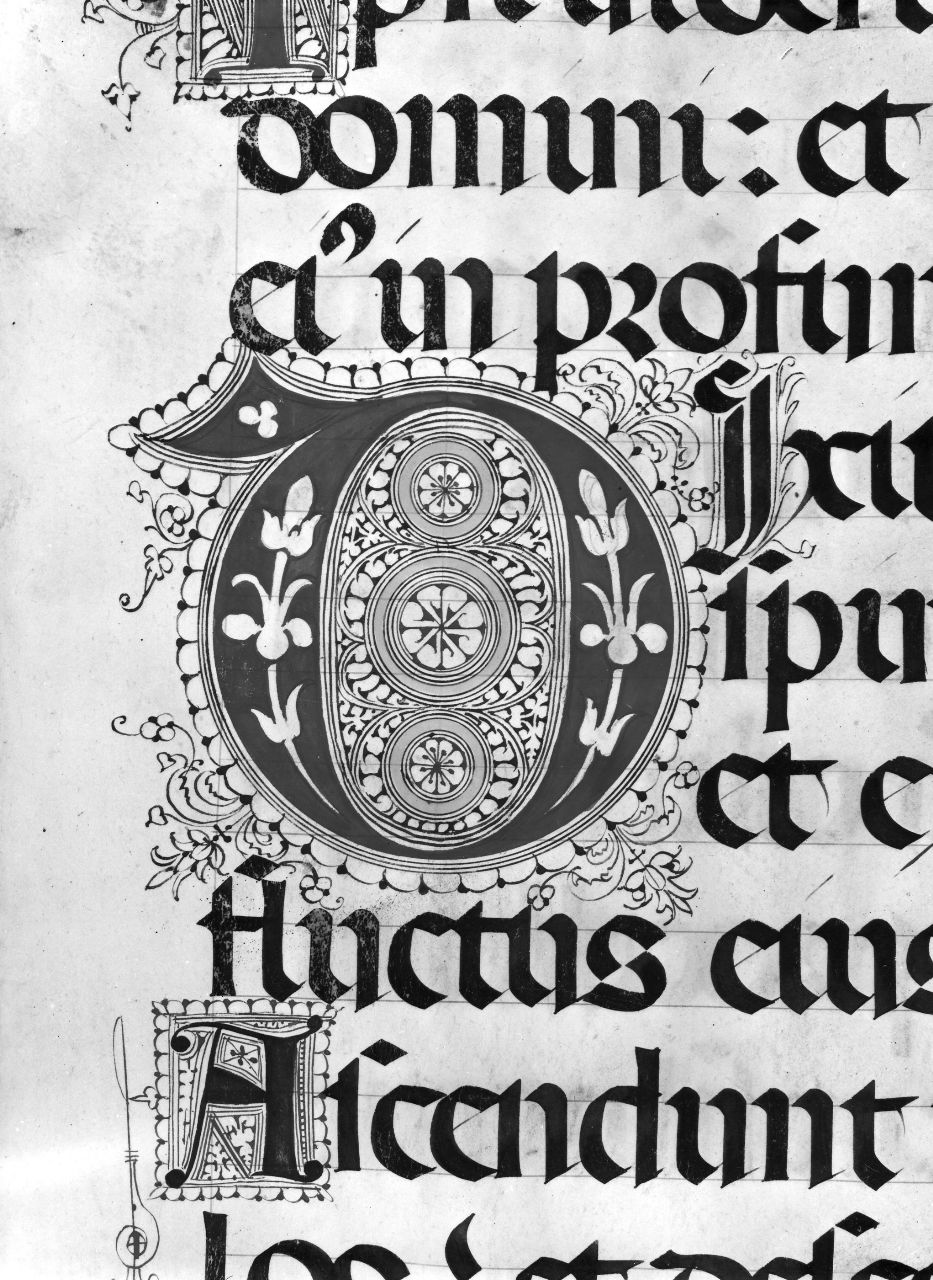 domini: et
ei' in profun
DIxit
ſpir
et e
fluctus eius
Aſcendunt